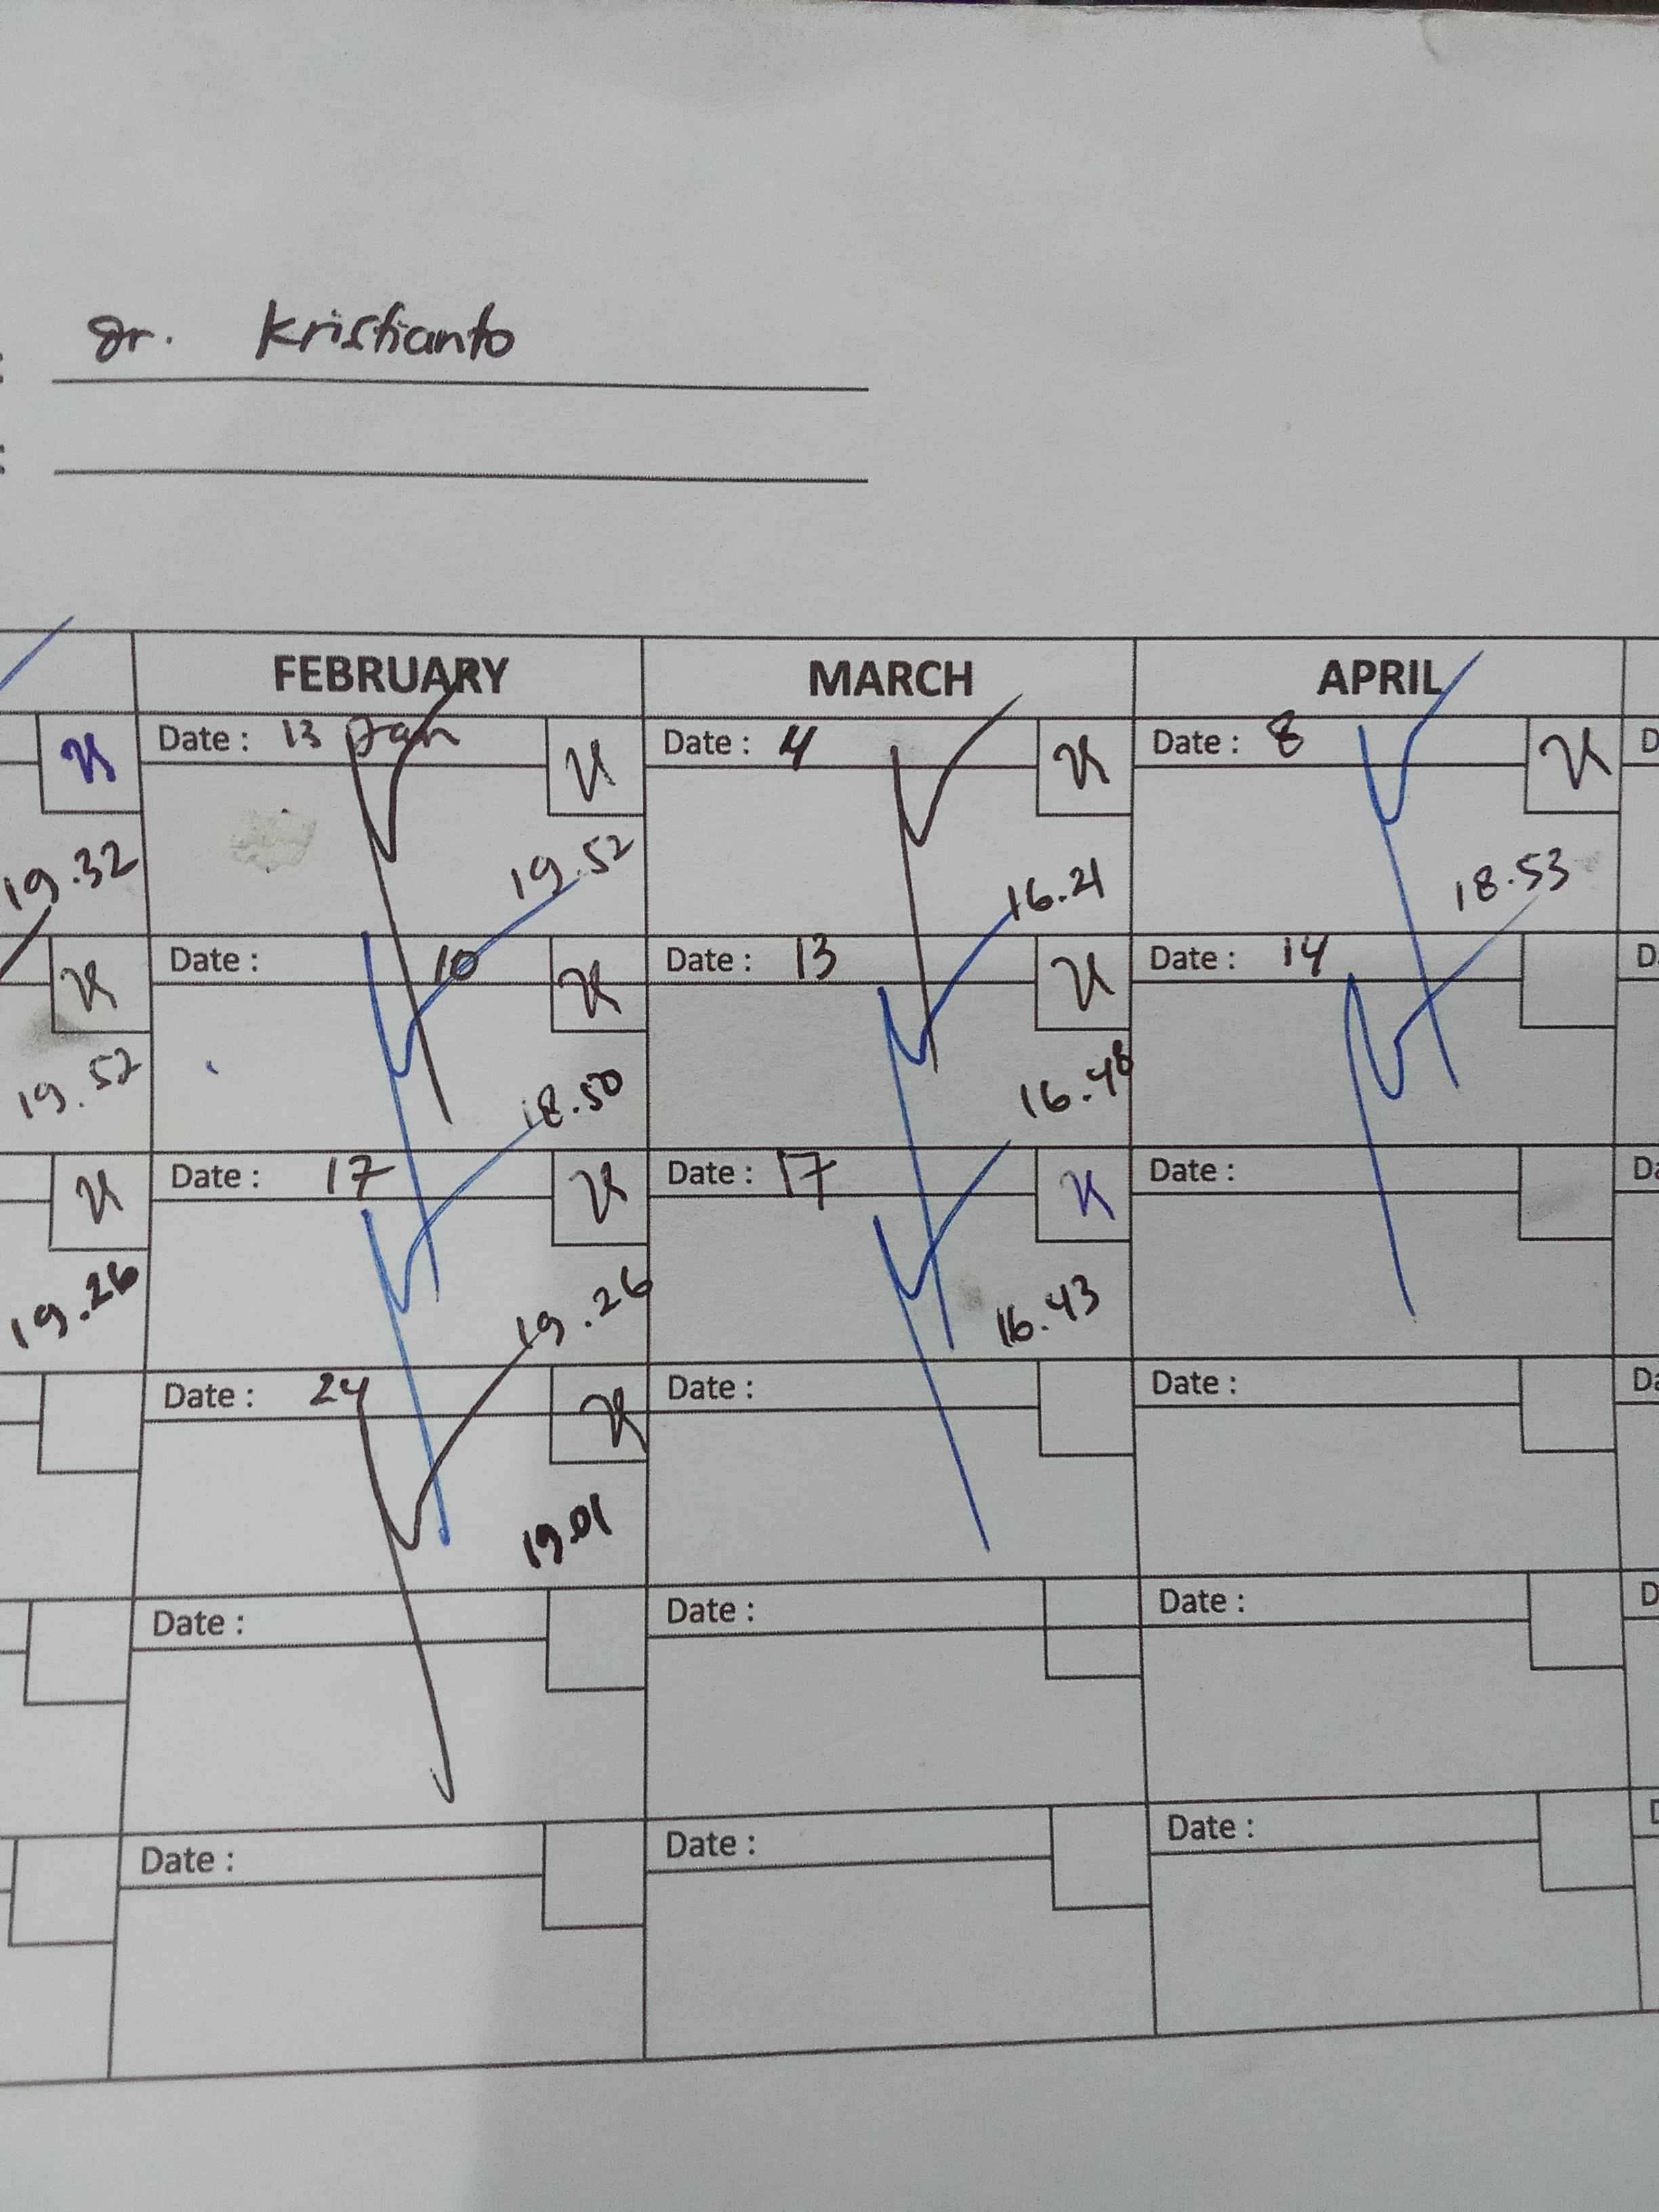 : dr. Kristianto
:
FEBRUARY MARCH APRIL
Date : 13 Jan Date : 4 Date : 8 D
19.32 19.52 16.21 18.53
Date : 10 Date : 13 Date : 14 D
19.52 18.50 16.48
Date : 17 Date : 17 Date : Da
19.26 19.26 16.43
Date : 24 Date : Date : Da
19.01
Date : Date : Date : D
Date : Date : Date :